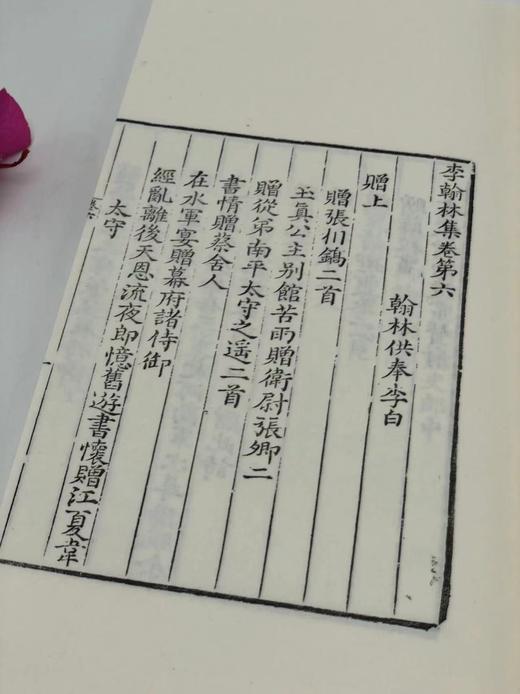 李翰林集卷第六
翰林供奉李白
贈上
贈張州鎬二首
玉真公主别館苦雨贈衛尉張卿二
贈從弟南平太守之遥二首
書情贈蔡舍人
在水軍宴贈幕府諸侍御
經亂離後天恩流夜郎憶舊遊書懷贈江夏韋
太守
卷六